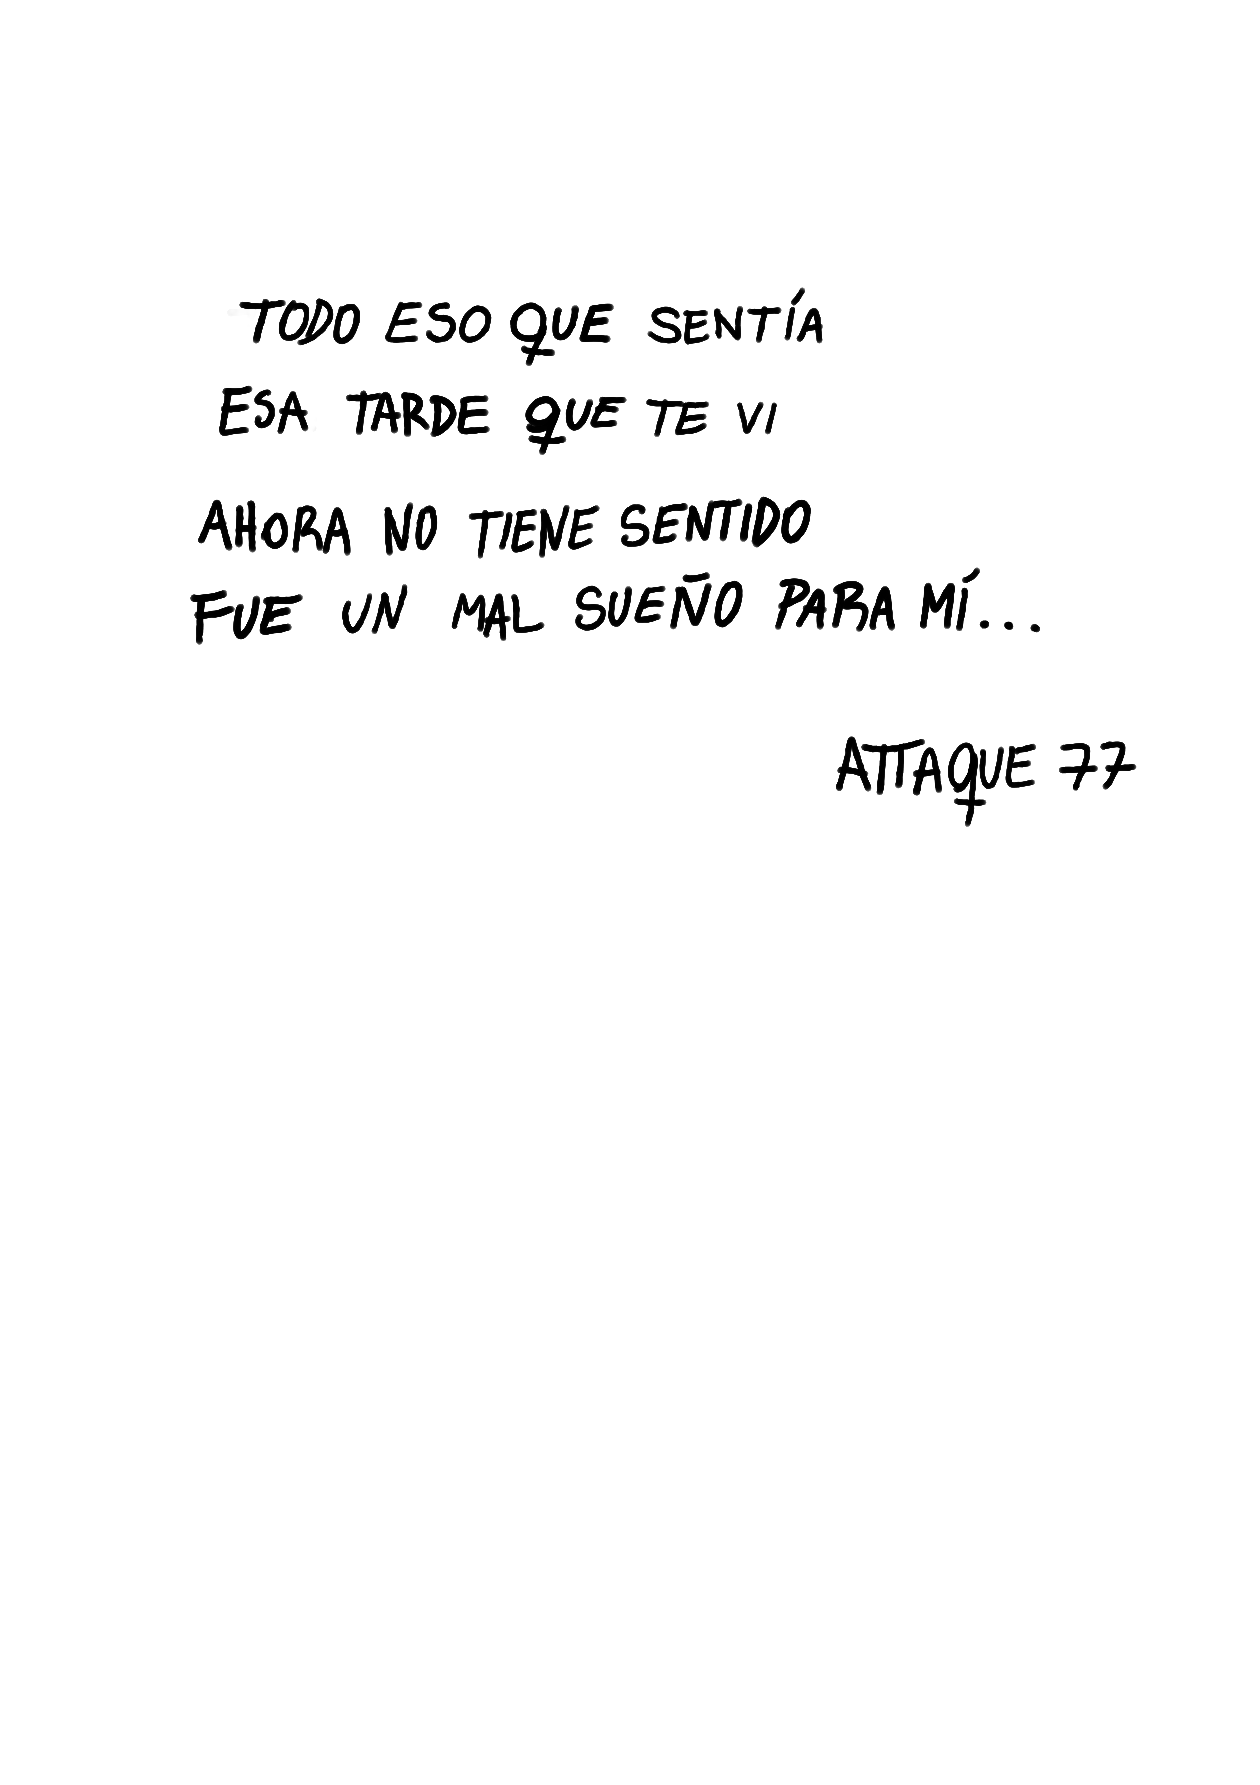 TODO ESO QUE SENTÍA
ESA TARDE QUE TE VI
AHORA NO TIENE SENTIDO
FUE UN MAL SUEÑO PARA MÍ...
ATTAQUE 77